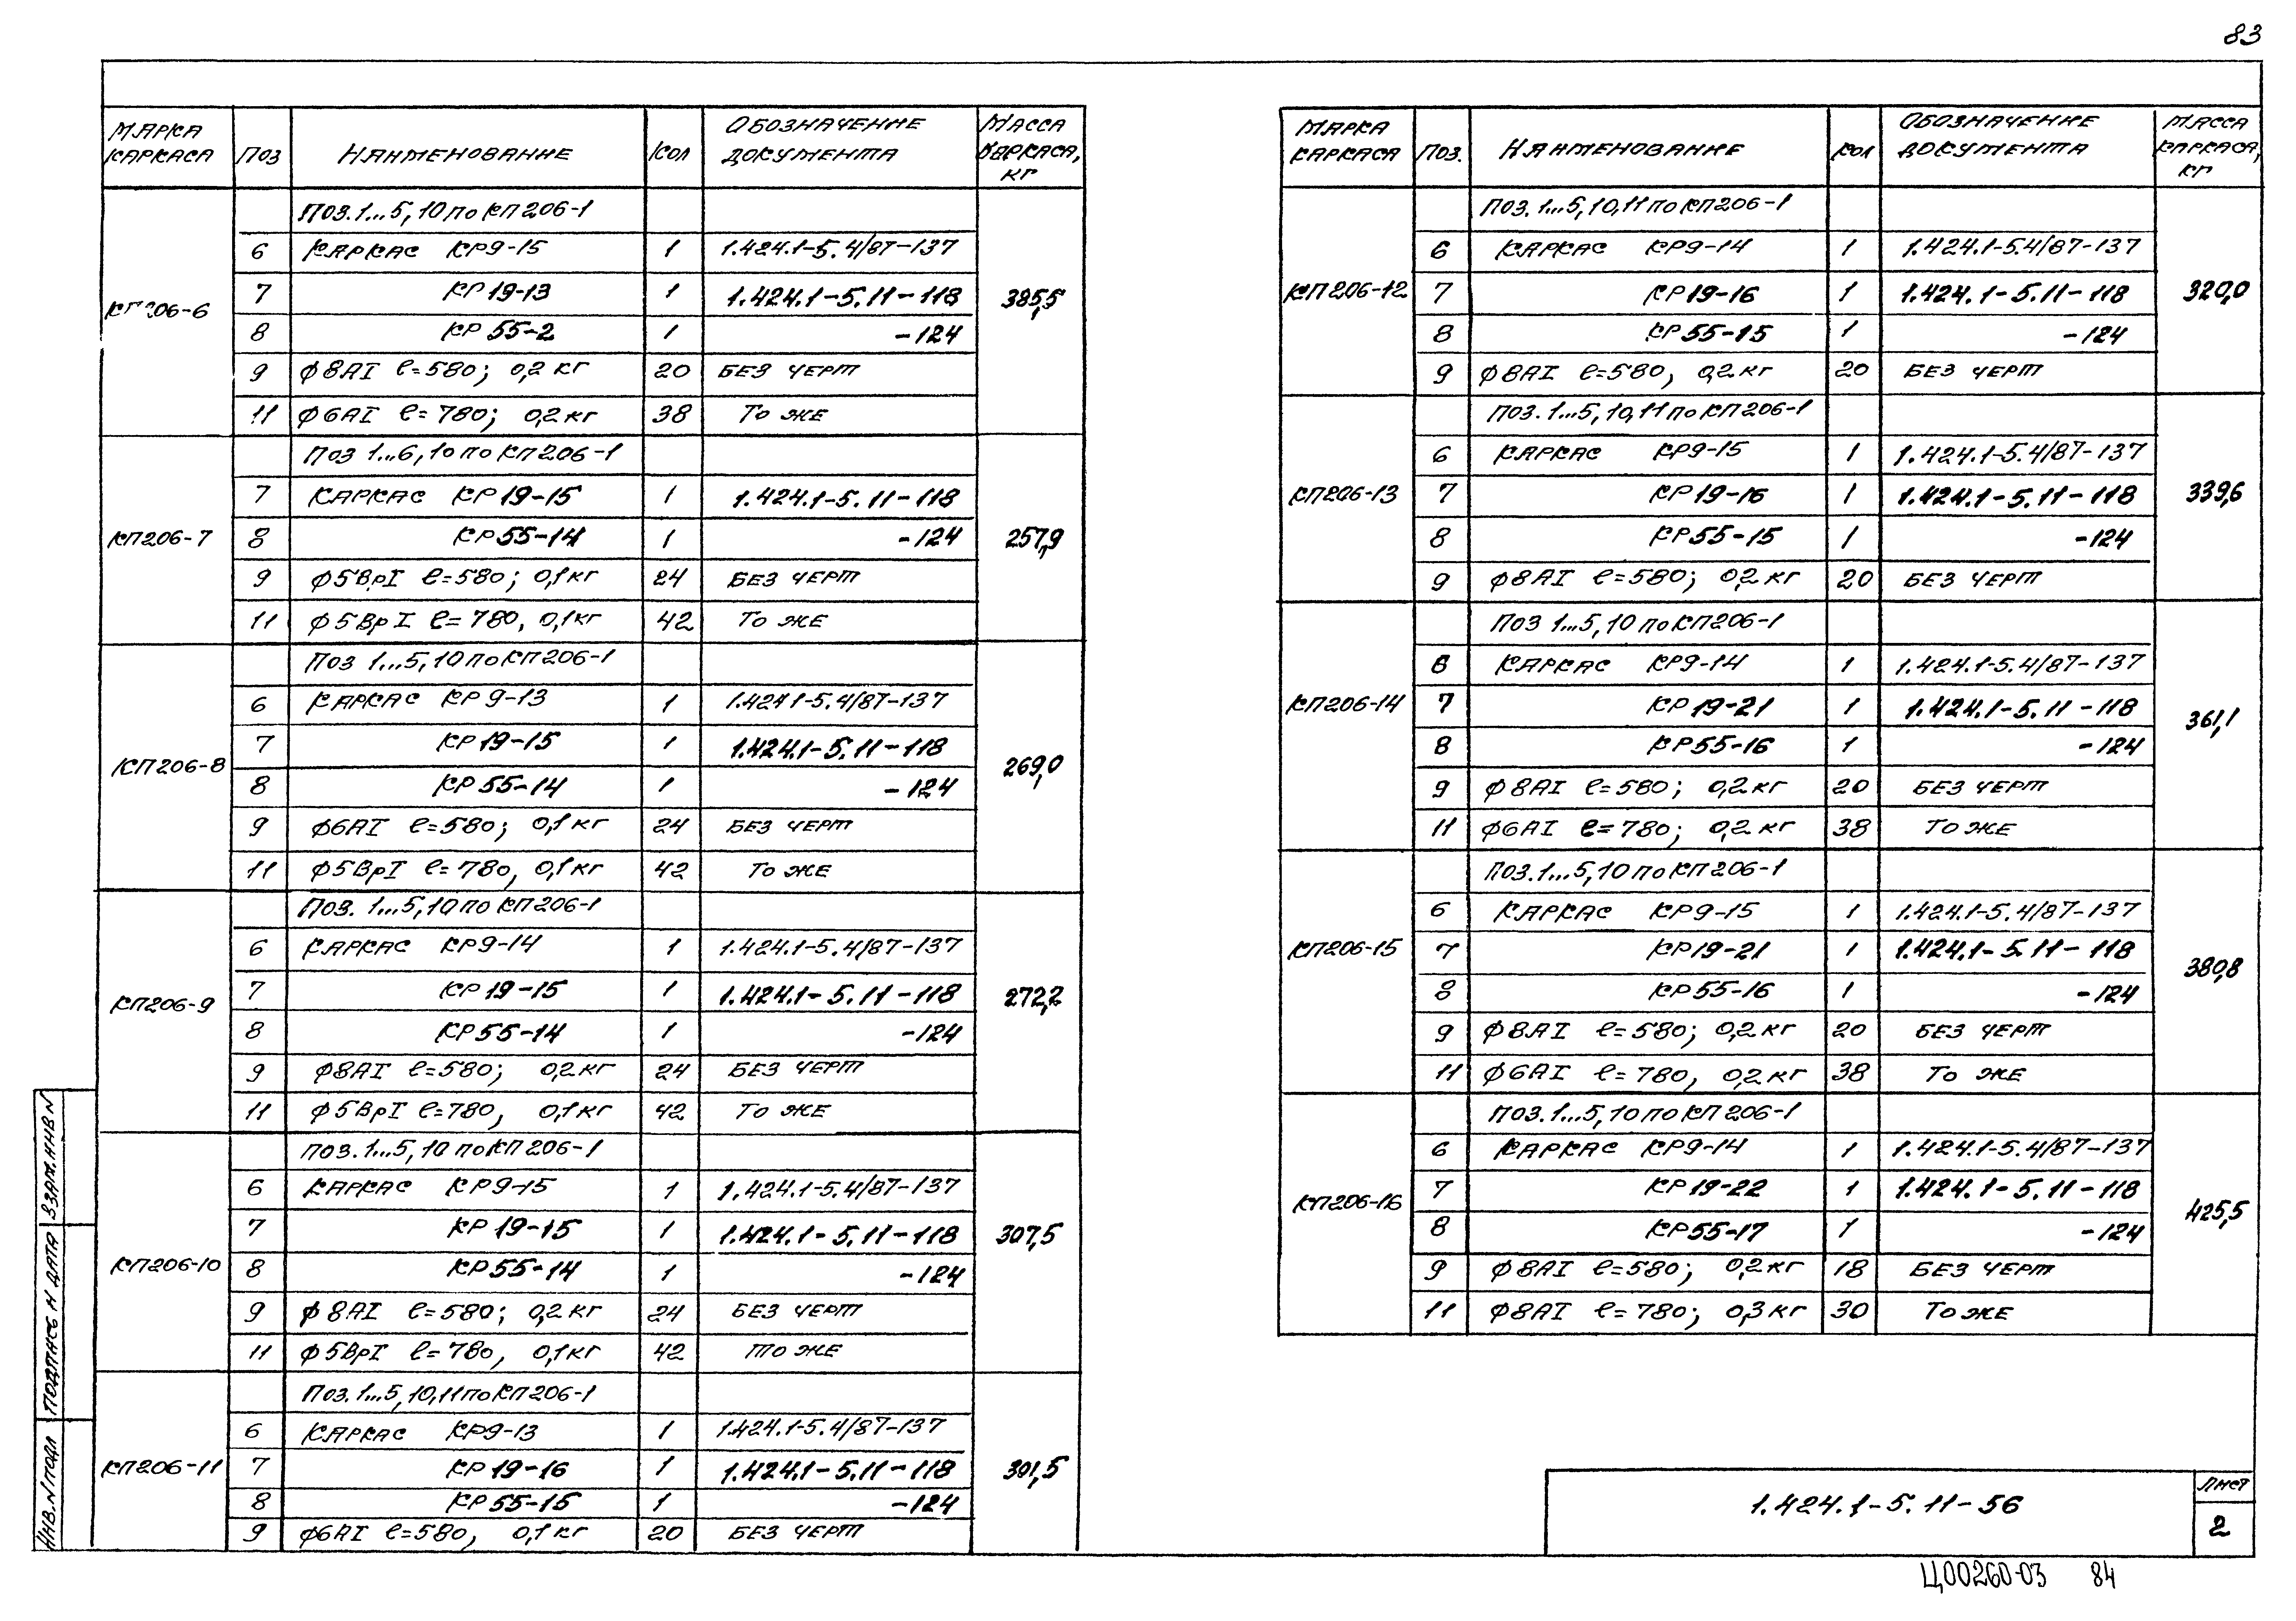 83
МАРКА КАРКАСА | ПОЗ | НАИМЕНОВАНИЕ | КОЛ | ОБОЗНАЧЕНИЕ ДОКУМЕНТА | МАССА КАРКАСА, КГ
ПОЗ. 1...5, 10 ПО КП206-1
6 КАРКАС КР9-15 1 1.424.1-5.4/87-137
КП206-6 7 КР19-13 1 1.424.1-5.11-118 385,5
8 КР55-2 1 -124
9 Ф8АI ℓ=580; 0,2 КГ 20 БЕЗ ЧЕРТ
11 Ф6АI ℓ=780; 0,2 КГ 38 ТО ЖЕ
ПОЗ 1...6, 10 ПО КП206-1
7 КАРКАС КР19-15 1 1.424.1-5.11-118
КП206-7 8 КР55-14 1 -124 257,9
9 Ф5ВрI ℓ=580; 0,1 КГ 24 БЕЗ ЧЕРТ
11 Ф5ВрI ℓ=780, 0,1 КГ 42 ТО ЖЕ
ПОЗ 1...5, 10 ПО КП206-1
6 КАРКАС КР9-13 1 1.424 1-5.4/87-137
7 КР19-15 1 1.424.1-5.11-118
КП206-8 8 КР55-14 1 -124 269,0
9 Ф6АI ℓ=580; 0,1 КГ 24 БЕЗ ЧЕРТ
11 Ф5ВрI ℓ=780, 0,1 КГ 42 ТО ЖЕ
ПОЗ. 1...5, 10 ПО КП206-1
6 КАРКАС КР9-14 1 1.424.1-5.4/87-137
КП206-9 7 КР19-15 1 1.424.1-5.11-118 272,2
8 КР55-14 1 -124
9 Ф8АI ℓ=580; 0,2 КГ 24 БЕЗ ЧЕРТ
11 Ф5ВрI ℓ=780, 0,1 КГ 42 ТО ЖЕ
ПОЗ. 1...5, 10 ПО КП206-1
6 КАРКАС КР9-15 1 1.424.1-5.4/87-137
7 КР19-15 1 1.424.1-5.11-118 307,5
КП206-10 8 КР55-14 1 -124
9 Ф8АI ℓ=580; 0,2 КГ 24 БЕЗ ЧЕРТ
11 Ф5ВрI ℓ=780, 0,1 КГ 42 ТО ЖЕ
ПОЗ. 1...5, 10, 11 ПО КП206-1
6 КАРКАС КР9-13 1 1.424.1-5.4/87-137
КП206-11 7 КР19-16 1 1.424.1-5.11-118 301,5
8 КР55-15 1 -124
9 Ф6АI ℓ=580, 0,1 КГ 20 БЕЗ ЧЕРТ
МАРКА КАРКАСА | ПОЗ. | НАИМЕНОВАНИЕ | КОЛ | ОБОЗНАЧЕНИЕ ДОКУМЕНТА | МАССА КАРКАСА, КГ
ПОЗ. 1...5, 10, 11 ПО КП206-1
6 КАРКАС КР9-14 1 1.424.1-5.4/87-137
КП206-12 7 КР19-16 1 1.424.1-5.11-118 320,0
8 КР55-15 1 -124
9 Ф8АI ℓ=580, 0,2 КГ 20 БЕЗ ЧЕРТ
ПОЗ. 1...5, 10, 11 ПО КП206-1
6 КАРКАС КР9-15 1 1.424.1-5.4/87-137
КП206-13 7 КР19-16 1 1.424.1-5.11-118 339,6
8 КР55-15 1 -124
9 Ф8АI ℓ=580; 0,2 КГ 20 БЕЗ ЧЕРТ
ПОЗ 1...5, 10 ПО КП206-1
6 КАРКАС КР9-14 1 1.424.1-5.4/87-137
КП206-14 7 КР19-21 1 1.424.1-5.11-118 361,1
8 КР55-16 1 -124
9 Ф8АI ℓ=580; 0,2 КГ 20 БЕЗ ЧЕРТ
11 Ф6АI ℓ=780; 0,2 КГ 38 ТО ЖЕ
ПОЗ. 1...5, 10 ПО КП206-1
6 КАРКАС КР9-15 1 1.424.1-5.4/87-137
КП206-15 7 КР19-21 1 1.424.1-5.11-118 380,8
8 КР55-16 1 -124
9 Ф8АI ℓ=580; 0,2 КГ 20 БЕЗ ЧЕРТ
11 Ф6АI ℓ=780, 0,2 КГ 38 ТО ЖЕ
ПОЗ. 1...5, 10 ПО КП206-1
6 КАРКАС КР9-14 1 1.424.1-5.4/87-137
КП206-16 7 КР19-22 1 1.424.1-5.11-118 425,5
8 КР55-17 1 -124
9 Ф8АI ℓ=580; 0,2 КГ 18 БЕЗ ЧЕРТ
11 Ф8АI ℓ=780; 0,3 КГ 30 ТО ЖЕ
ИНВ. N ПОДЛ ПОДПИСЬ И ДАТА ВЗАМ. ИНВ N
1.424.1-5.11-56
ЛИСТ
2
Ц00260-03 84